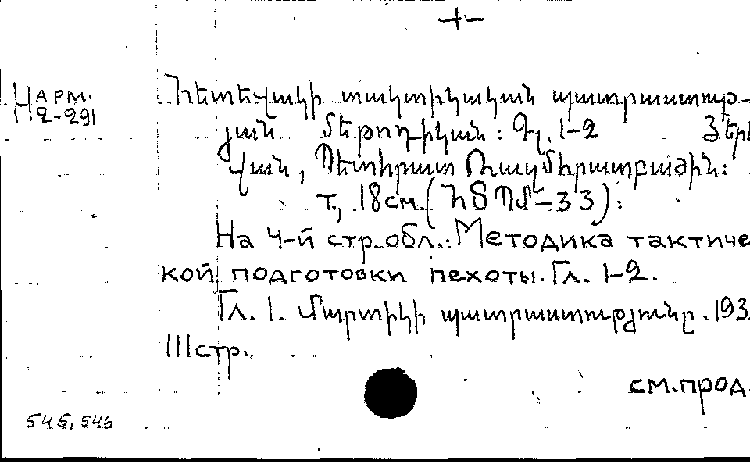 +
Н АРМ.
2-291
Հետեվակի տակտիկական պատրաստու-
յան մեթոդիկան: Գլ. 1-2 Յերե
վան, Պետհրատ Ռազմհրատբաժին:
т, 18 см. (ՀՏՊՄ-33):
На 4-й стр. обл.: Методика тактиче
кой подготовки пехоты. Гл. 1-2.
Гл. 1. Մարտիկի պատրաստությունը. 193
111 стр.
см. прод.
545, 546